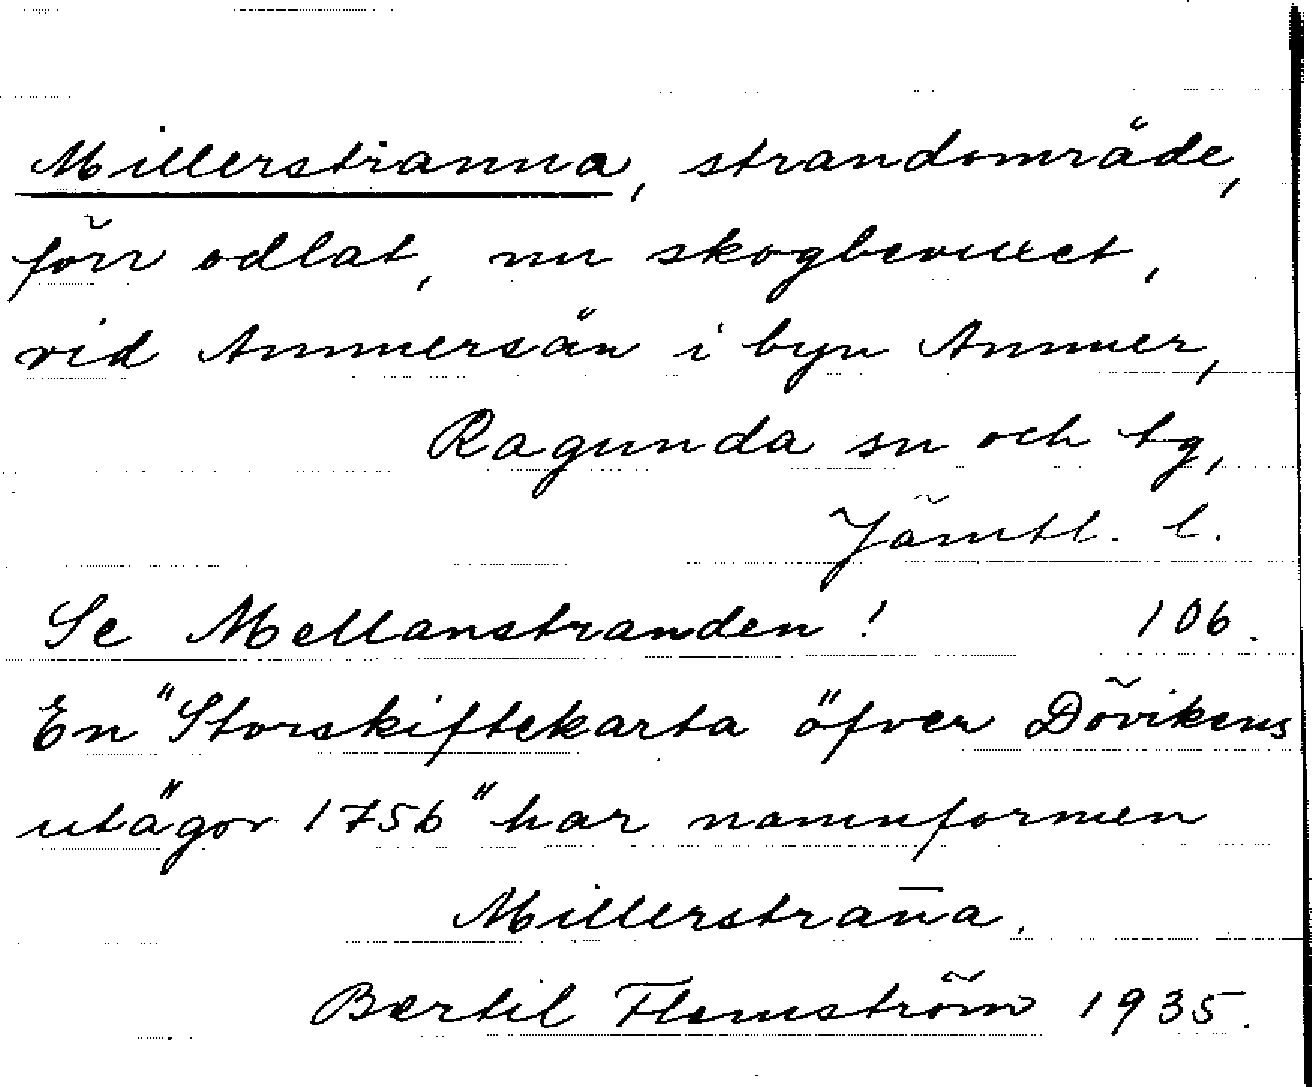 Millerstranna, strandområde,
förr odlat, nu skogbevuxet,
vid Ammersån i byn Ammer,
Ragunda sn och tg,
Jämtl. l.
Se Mellanstranden! 106.
En "Storskiftekarta öfver Dövikens
utägor 1756" har namnformen
Millerstran̄a.
Bertil Flemström 1935.